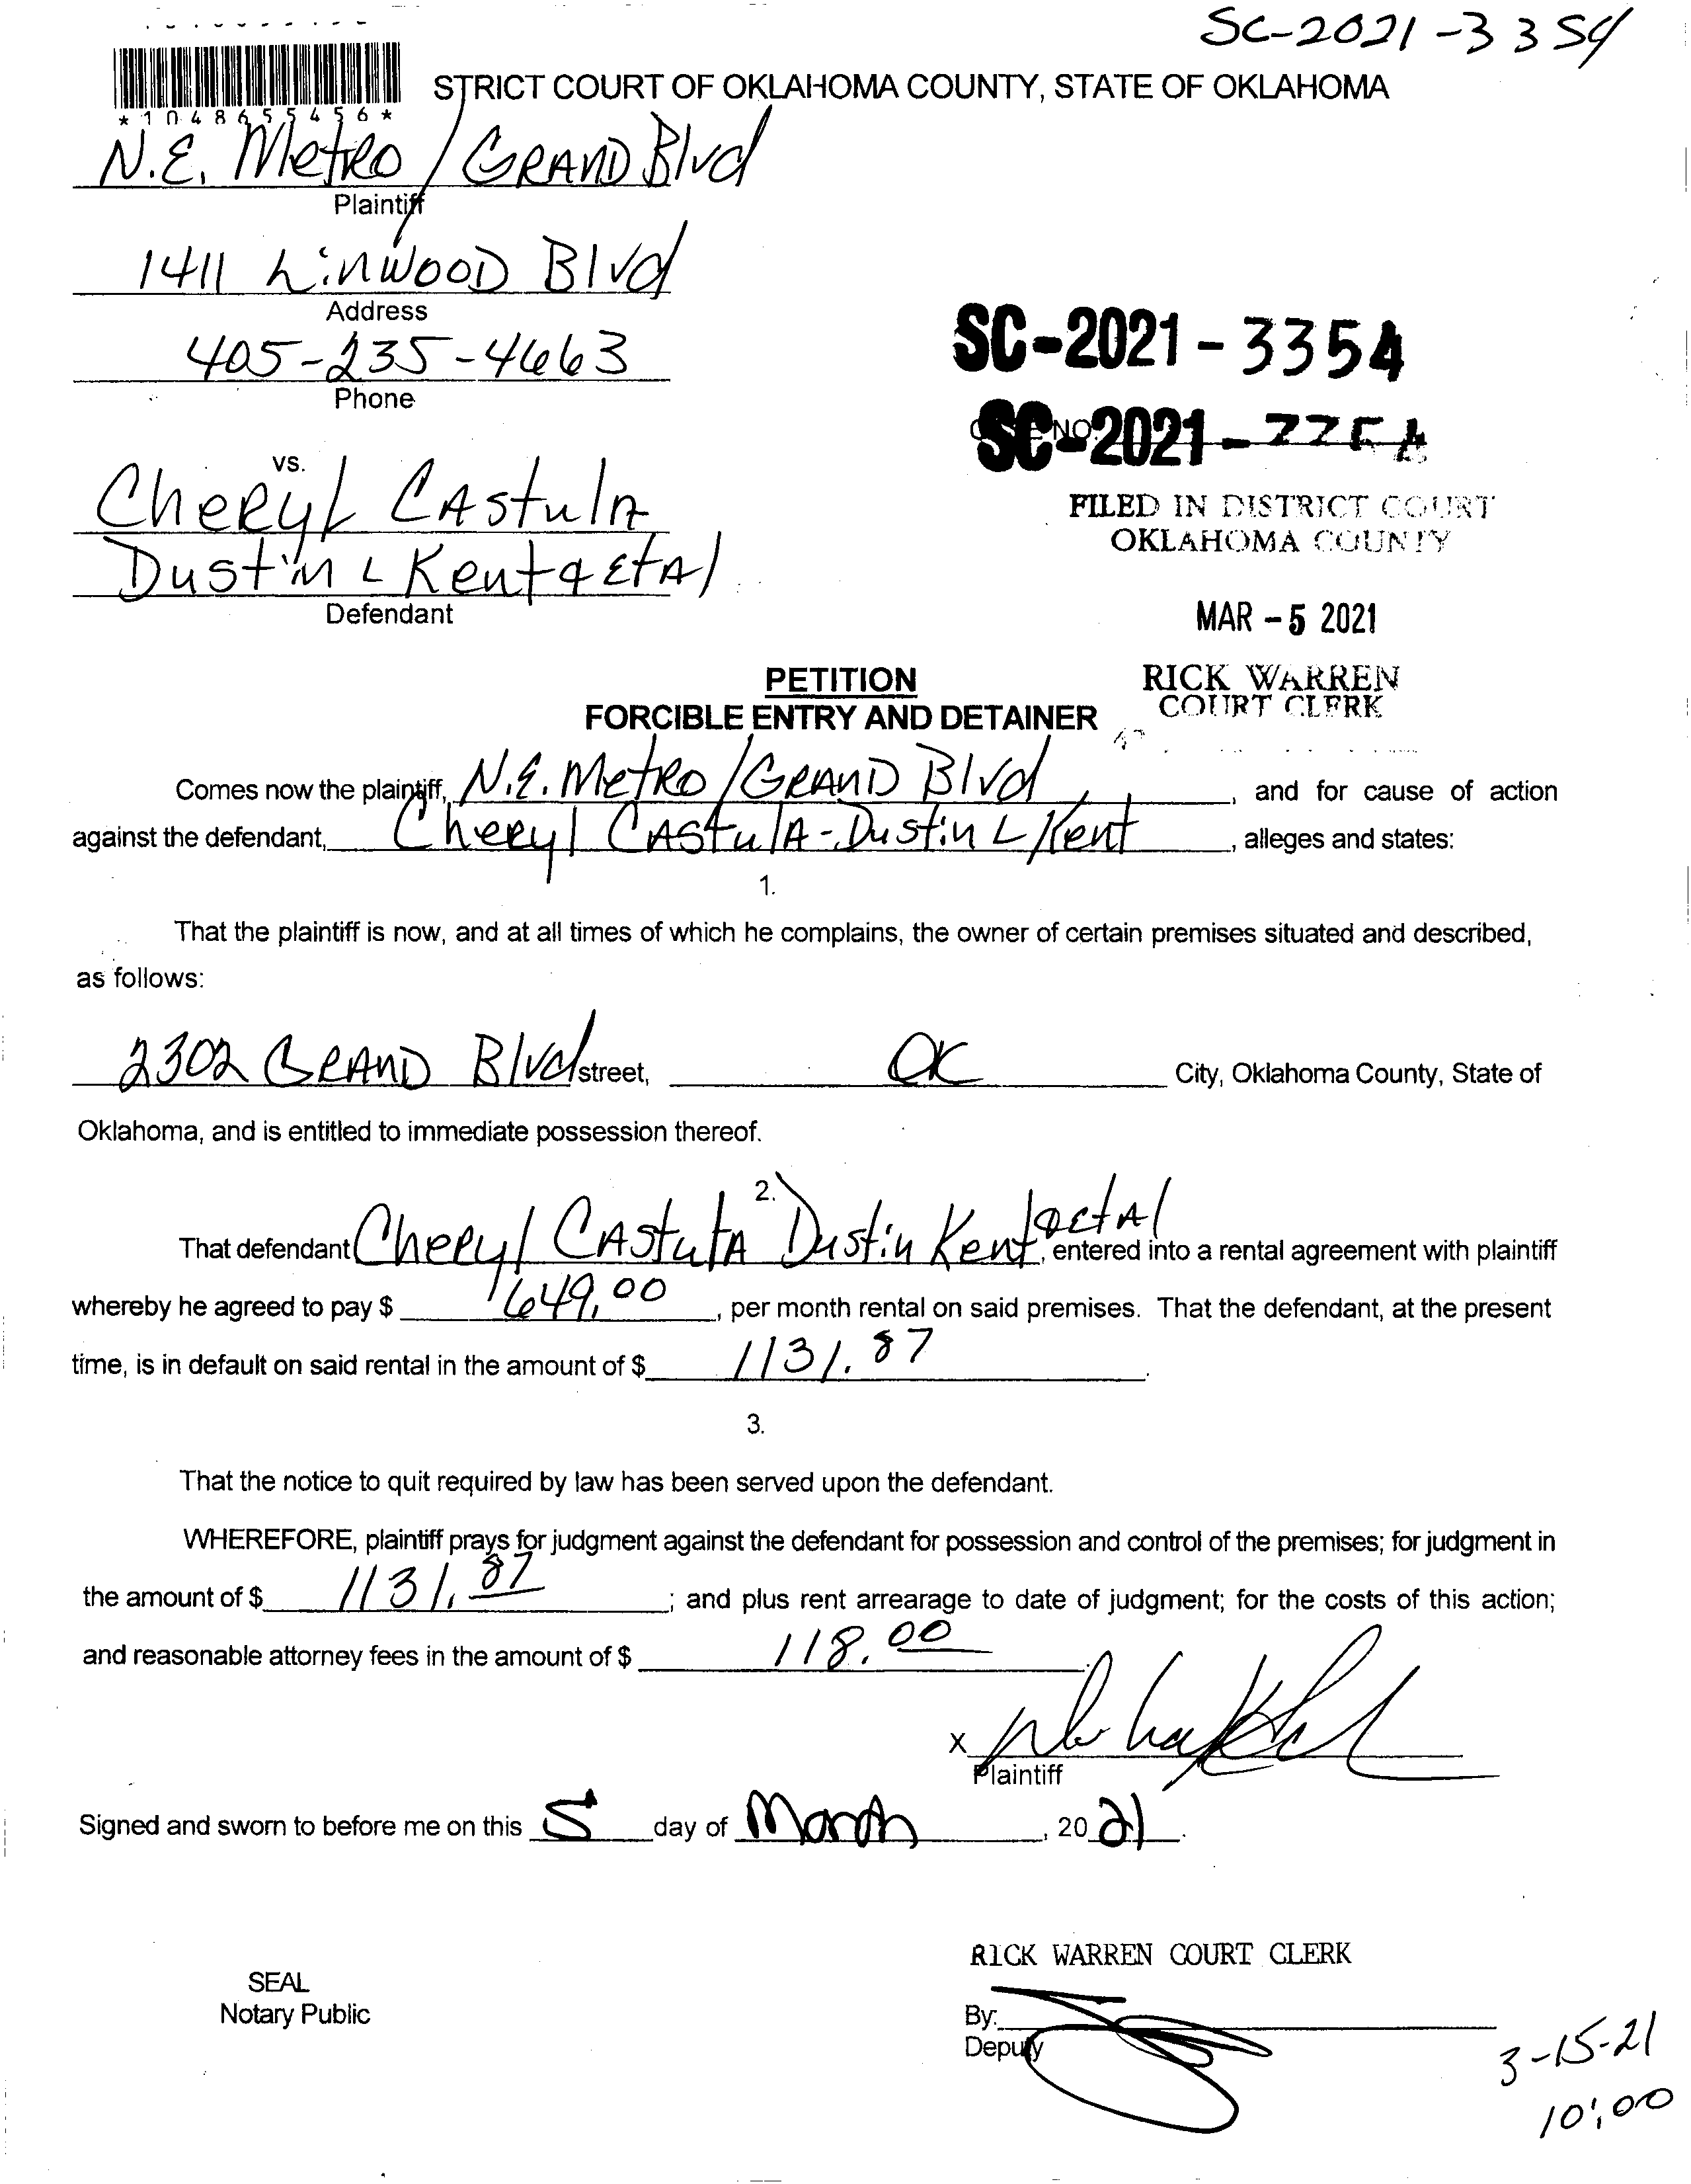 SC-2021-3354
STRICT COURT OF OKLAHOMA COUNTY, STATE OF OKLAHOMA
*1048655456*
N.E. Metro / GRAND Blvd
Plaintiff
1411 LiNWOOD Blvd
Address
405-235-4663
Phone
SC-2021-3354
SC-2021-
vs.
Cheryl CAstulA
FILED IN DISTRICT COURT
OKLAHOMA COUNTY
Dustin L Kent & EtAl
Defendant
MAR - 5 2021
RICK WARREN
COURT CLERK
PETITION
FORCIBLE ENTRY AND DETAINER
Comes now the plaintiff, N.E. Metro / GRAND Blvd, and for cause of action
against the defendant, Cheryl CAStulA - Dustin L Kent, alleges and states:
1.
That the plaintiff is now, and at all times of which he complains, the owner of certain premises situated and described,
as follows:
2302 GRAND Blvd street, OK City, Oklahoma County, State of
Oklahoma, and is entitled to immediate possession thereof.
2.
That defendant Cheryl CAStulA Dustin Kent & etAl, entered into a rental agreement with plaintiff
whereby he agreed to pay $ 649.00, per month rental on said premises. That the defendant, at the present
time, is in default on said rental in the amount of $ 1131.87.
3.
That the notice to quit required by law has been served upon the defendant.
WHEREFORE, plaintiff prays for judgment against the defendant for possession and control of the premises; for judgment in
the amount of $ 1131.87; and plus rent arrearage to date of judgment; for the costs of this action;
and reasonable attorney fees in the amount of $ 118.00.
X
Plaintiff
Signed and sworn to before me on this 5 day of March, 2021.
RICK WARREN COURT CLERK
SEAL
Notary Public
By:
Deputy
3-15-21
10:00